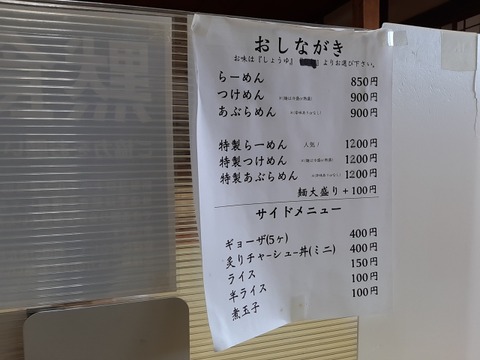 おしながき
お味は『しょうゆ』 よりお選び下さい。
らーめん 850円
つけめん 900円
あぶらめん 900円
特製らーめん 人気! 1200円
特製つけめん 1200円
特製あぶらめん 1200円
麺大盛り+100円
サイドメニュー
ギョーザ(5ヶ) 400円
炙りチャーシュー丼(ミニ) 400円
ライス 150円
半ライス 100円
煮玉子 100円